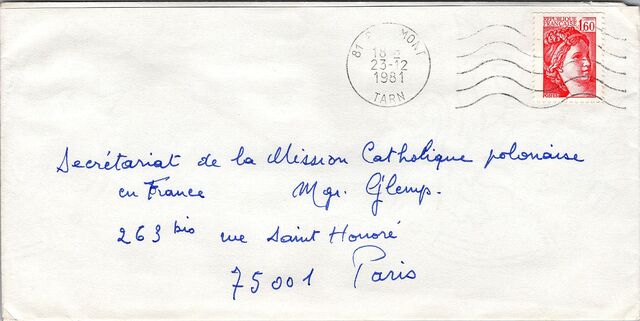 RÉPUBLIQUE
FRANÇAISE 1,60
81 MONT
18 H
23-12
1981
TARN
Secrétariat de la Mission Catholique polonaise
en France Mgr. Glemp.
263 bis rue Saint Honoré
75001 Paris